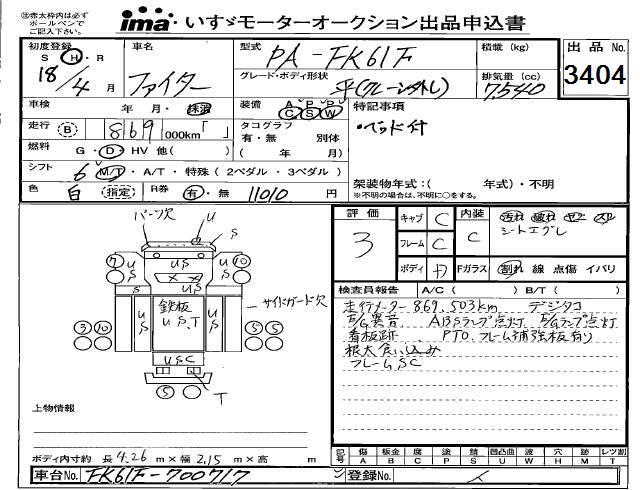 ㊟赤太枠内は必ず
ボールペンで
ご記入下さい。
ima いすゞモーターオークション出品申込書
初度登録 S・H・R 18/4 月
車名 ファイター
型式 PA-FK61F
グレード・ボディ形状 平(クレーン外し)
積載 (kg)
排気量 (cc) 7,540
出品No. 3404
車検 年・月・抹消
走行 (B) 869,000km「 」
燃料 G・D・HV 他( )
シフト 6 M/T・A/T・特殊(2ペダル・3ペダル)
色 白 (指定) R券 有・無 11010 円
装備 A/C P/S P/W
タコグラフ
有・無 別体
( 年 月)
特記事項
・ベッド付
架装物年式:( 年式)・不明
※不明の場合は、不明に○をする。
パーツ欠 U S
7 U S US U S 10
鉄板 US.T
US US
サイドガード欠
3 10 5 5
USC
5 T
上物情報
ボディ内寸約 長 4.26 m×幅 2.15 m×高 m
評価 3
キャブ C
フレーム C
ボディ カ
内装 C
汚れ 破れ ゼニ スレ
シートエグレ
Fガラス 割れ 線 点傷 イバリ
検査員報告 A/C( ) B/T( )
走行メーター869,503km デジタコ
E/G異音 ABSランプ点灯 E/Gランプ点灯
看板跡 PTO、フレーム補強板有り
根太食い込み
フレームSC
記号 傷 A 板金 B 腐 C 塗 P 錆 S 凹凸曲 U 波 W 穴 H 跡 M レツ割 T
車台No. FK61F-700717
登録No.